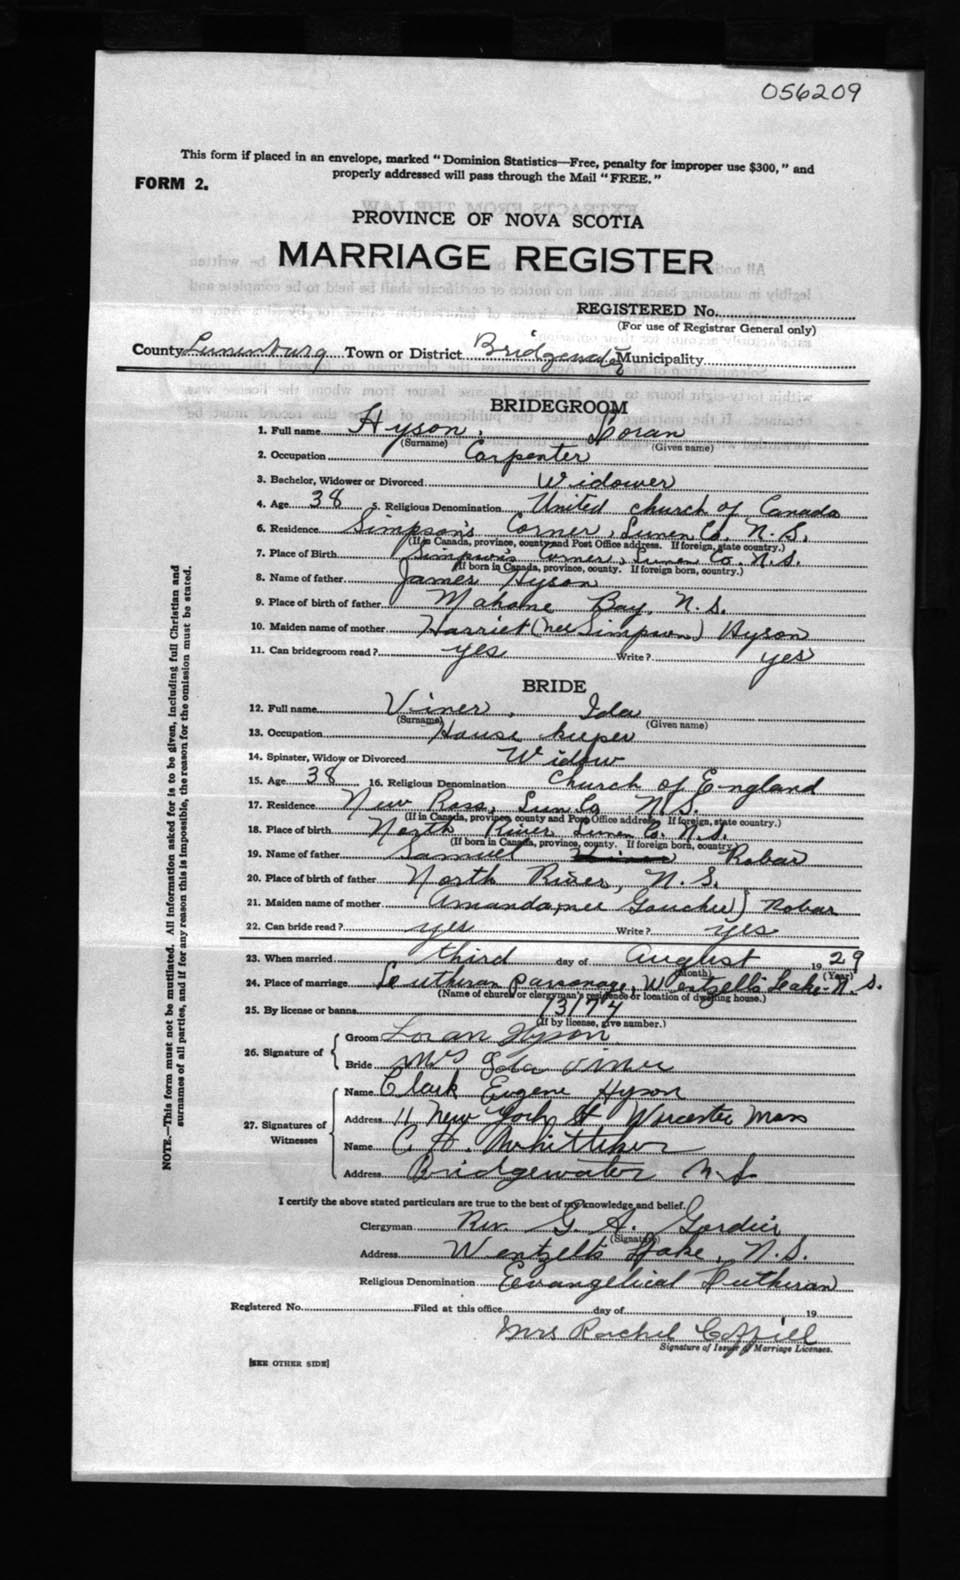 056209
This form if placed in an envelope, marked "Dominion Statistics—Free, penalty for improper use $300," and
properly addressed will pass through the Mail "FREE."
FORM 2.
PROVINCE OF NOVA SCOTIA
MARRIAGE REGISTER
REGISTERED No.
(For use of Registrar General only)
County Lunenburg Town or District Bridgewater Municipality
BRIDEGROOM
1. Full name Hyson, Loran
(Surname) (Given name)
2. Occupation Carpenter
3. Bachelor, Widower or Divorced Widower
4. Age 38 5. Religious Denomination United church of Canada
6. Residence Simpson's Corner, Lunen Co. N.S.
(If in Canada, province, county and Post Office address. If foreign, state country.)
7. Place of Birth Simpson's Corner, Lunen Co. N.S.
(If born in Canada, province, county. If foreign born, country.)
8. Name of father James Hyson
9. Place of birth of father Mahone Bay, N.S.
10. Maiden name of mother Harriet (nee Simpson) Hyson
11. Can bridegroom read? yes Write? yes
BRIDE
12. Full name Viner, Ida
(Surname) (Given name)
13. Occupation House keeper
14. Spinster, Widow or Divorced Widow
15. Age 38 16. Religious Denomination Church of England
17. Residence New Ross, Lun Co N.S.
(If in Canada, province, county and Post Office address. If foreign, state country.)
18. Place of birth North River Lunen Co. N.S.
(If born in Canada, province, county. If foreign born, country.)
19. Name of father Samuel Robar
20. Place of birth of father North River, N.S.
21. Maiden name of mother Amanda, nee Goucher) Robar
22. Can bride read? yes Write? yes
23. When married third day of August 1929
(Month) (Year)
24. Place of marriage Lutheran parsonage, Wentzell's Lake N.S.
(Name of church or clergyman's residence or location of dwelling house.)
25. By license or banns 13174
(If by license, give number.)
26. Signature of
Groom Loran Hyson
Bride Mrs Ida Viner
27. Signatures of Witnesses
Name Clark Eugene Hyson
Address 11 New York St Worcester Mass
Name C. H. Whittier
Address Bridgewater N.S
I certify the above stated particulars are true to the best of my knowledge and belief.
Clergyman Rev. G. A. Gordier
(Signature)
Address Wentzell's Lake, N.S.
Religious Denomination Evangelical Lutheran
Registered No. Filed at this office day of 19
Mrs Rachel Coffill
Signature of Issuer of Marriage Licenses.
[SEE OTHER SIDE]
NOTE.—This form must not be mutilated. All information asked for is to be given, including full Christian and
surnames of all parties, and if for any reason this is impossible, the reason for the omission must be stated.